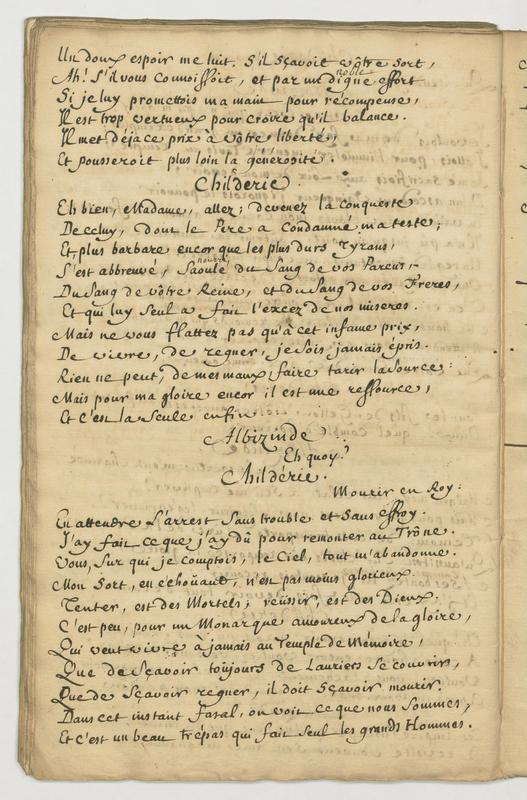 Un doux espoir me luit. S'il sçavoit vôtre sort,
Ah! S'il vous connoissoit, et par un digne effort
noble
Si je luy promettois ma main pour recompense,
Il est trop vertueux pour croire qu'il balance.
Il met déja ce prix à vôtre liberté,
Et pousseroit plus loin la générosité.
Childéric.
Eh bien, Madame, allez; devenez la conqueste
De celuy, dont le Pere a condamné ma teste;
Et plus barbare encor que les plus durs Tyrans,
S'est abbreuvé, Saoulé du Sang de vos Parens,
nourri
Du Sang de vôtre Reine, et du Sang de vos Freres,
Et qui luy seul a fait l'excez de nos miseres.
Mais ne vous flattez pas qu'à cet infame prix,
De vivre, de regner, je sois jamais épris.
Rien ne peut, de mes maux, faire tarir la source:
Mais pour ma gloire encor il est une ressource,
Et c'est la seule enfin
Albizinde.
Eh quoy?
Childéric.
Mourir en Roy:
En attendre l'arrest sans trouble et sans effroy.
J'ay fait ce que j'ay dû pour remonter au Trône.
Vous, sur qui je comptois, le Ciel, tout m'abandonne.
Mon Sort, en échoüant, n'est pas moins glorieux.
Tenter, est des Mortels; reüssir, est des Dieux.
C'est peu, pour un Monarque amoureux de la gloire,
Qui veut vivre à jamais au Temple de Mémoire,
Que de Sçavoir toûjours de Lauriers se couvrir,
Que de Sçavoir regner, il doit Sçavoir mourir.
Dans cet instant fatal, on voit ce que nous sommes,
Et c'est un beau trépas qui fait seul les grands Hommes.